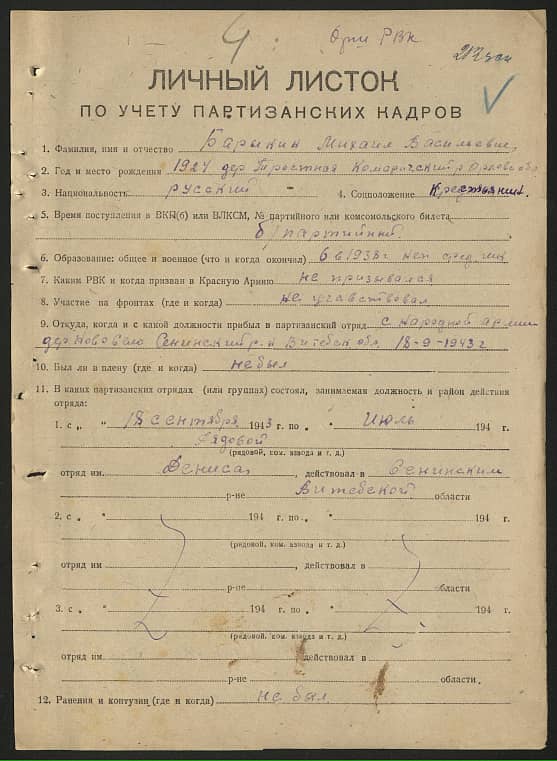 4
Орш РВК
ЛИЧНЫЙ ЛИСТОК
ПО УЧЕТУ ПАРТИЗАНСКИХ КАДРОВ
1. Фамилия, имя и отчество Барыкин Михаил Васильевич
2. Год и место рождения 1924 дер Тростная Комаричский р Орловс обл
3. Национальность русский 4. Соцположение Крестьянин
5. Время поступления в ВКП(б) или ВЛКСМ, № партийного или комсомольского билета
б/партийный.
6. Образование: общее и военное (что и когда окончил) 6 в 1938 г неп сред шк
7. Каким РВК и когда призван в Красную Армию не призывался
8. Участие на фронтах (где и когда) не учавствовал
9. Откуда, когда и с какой должности прибыл в партизанский отряд с народной армии
дер Сенинский р-н Витебск обл. 18-9-1943 г
10. Был ли в плену (где и когда) не был
11. В каких партизанских отрядах (или группах) состоял, занимаемая должность и район действия
отряда:
1. с „ “ 18 сентября 1943 г. по „ “ Июль 194 г.
Рядовой
(рядовой, ком. взвода и т. д.)
отряд им. Дениса, действовал в Сенинским
р-не Витебской области
2. с „ “ 194 г. по „ “ 194 г.
(рядовой, ком. взвода и т. д.)
отряд им. , действовал в
р-не области
3. с „ “ 194 г. по „ “ 194 г.
(рядовой, ком. взвода и т. д.)
отряд им. действовал в
р-не области
12. Ранения и контузии (где и когда) не был